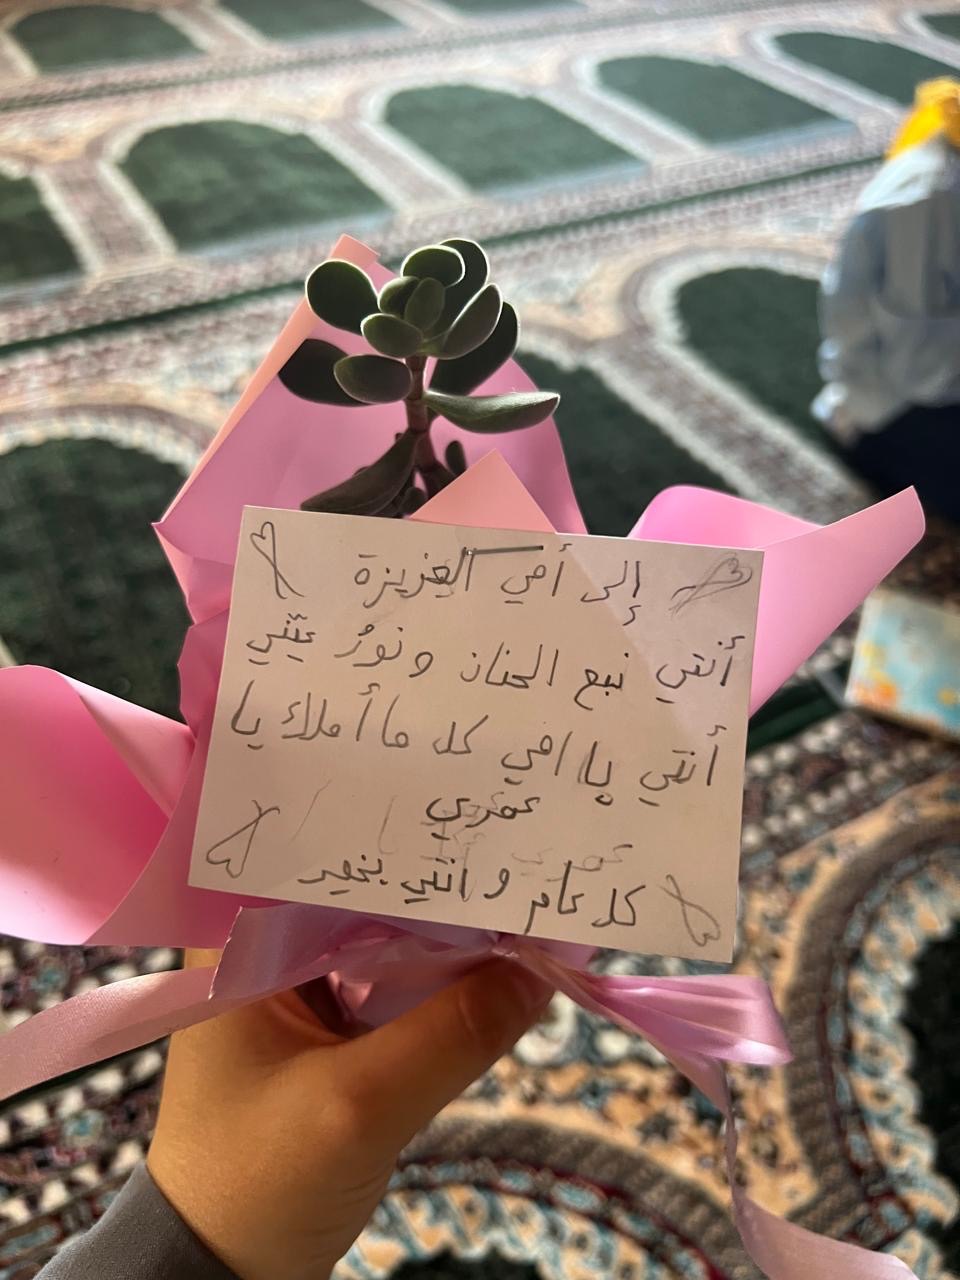 إلى أمي العزيزة
أنتي نبع الحنان ونورُ عيّني
أنتي يا امي كل ما أملك يا
عمري
كل عام و انتي بخير